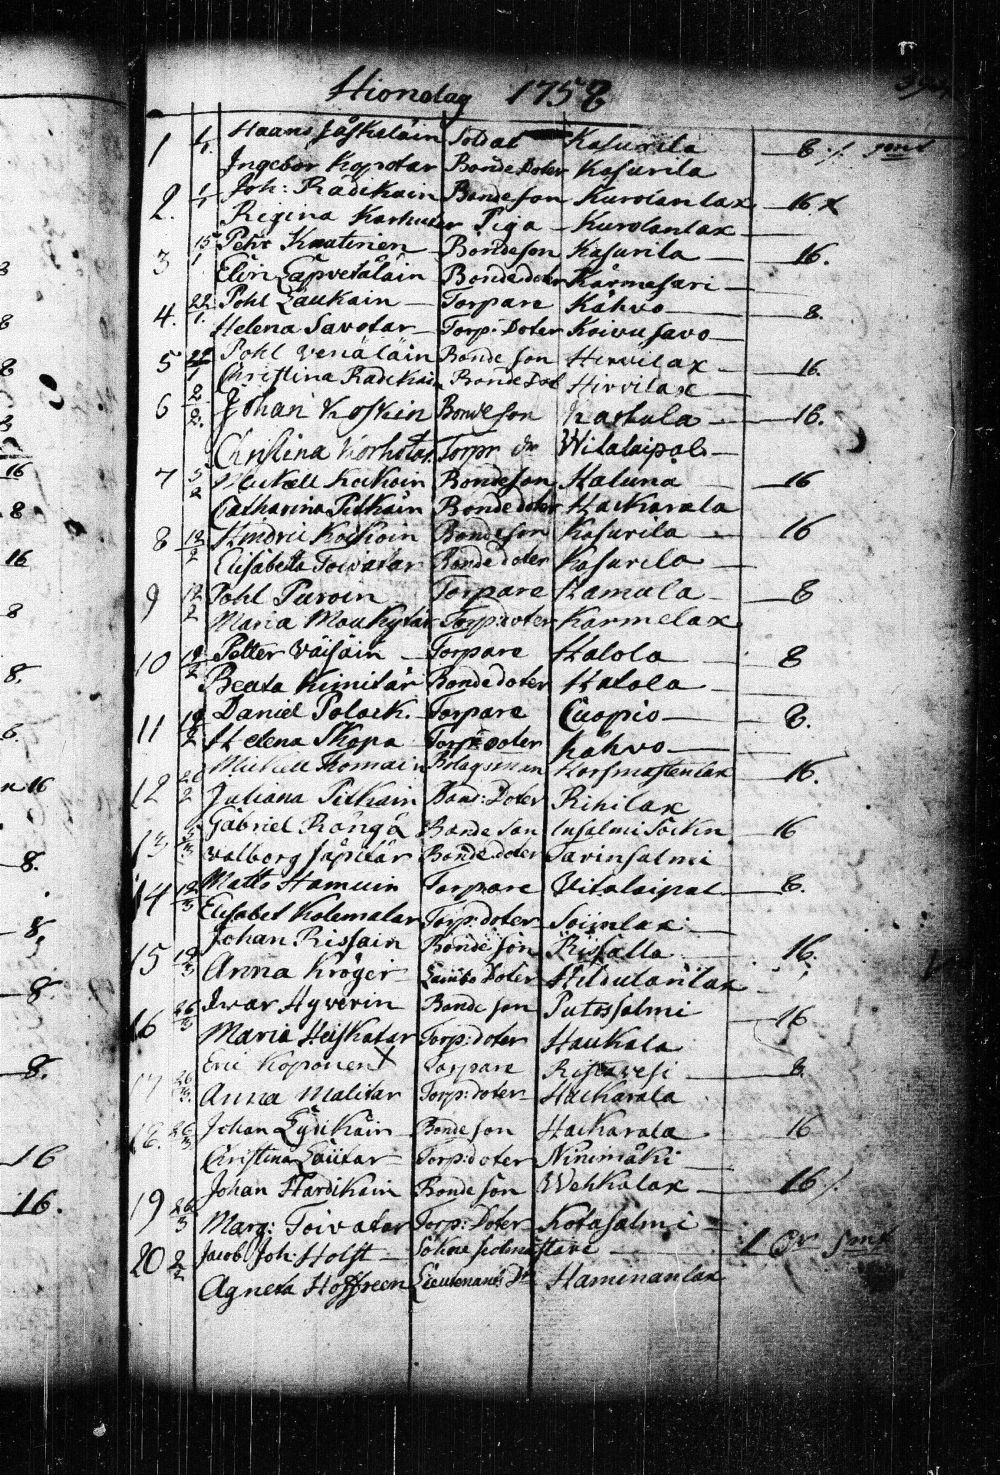 Hionelag 1758
1 1/1 Haans Jäskeläin Soldat Kasurila 8 %
Ingebor Kopotar Bonde Doter Kasurila
2. 1/1 Joh: Rädikain Bondeson Kurolanlax 16
Regina Karhutar Piga Kurolanlax
3 15/1 Pehr Knutinen Bondeson Kasurila 16.
Elin Läpvetäläin Bondedoter Kärmesari
4. 22/1. Pohl Laukain Torpare Kähvo 8.
Helena Savotar Torp: Doter Koivusavo
5 22/1 Pohl Venäläin Bonde son Hirvilax 16.
Christina Rädikain Bonde Dot Hirvilax
6 2/2. Johan Koskin Bonde son Kaskula 16.
Christina Korhotar Torpr dr Witalaipal
7 5/2 Michell Kockoin Bondeson Haluna 16
Catharina Pitkäin Bondedoter Hackarala
8 12/2 Hindric Kockoin Bondeson Kasurila 16
Elisabeta Toivatar Bondedoter Kasurila
9 12/2 Pohl Puroin Torpare Hamula 8
Maria Moukytär Torp:doter Kärmelax
10 12/2 Petter Väisäin Torpare Halola 8
Beata Kinitär Bondedoter Halola
11 12/2 Daniel Polack. Torpare Cuopio 8.
Helena Skopa Torp:doter Kähvo
12 26/2 Michell Thomain Bolagsman Horsmastenlax 16.
Juliana Pitkäin Bond: Doter Rihilax
13 5/3 Gabriel Rångå Bonde son Insalmi Sockn 16
Valborg Jäpitär Bonde doter Savinsalmi
14 12/3 Matts Hamuin Torpare Vitalaipal 8.
Elisabet Kolemalar Torp:doter Soiinlax
15 19/3 Johan Rissain Bonde son Riisälla 16.
Anna Kröger Doter Hildulanlax
16 26/3 Iwar Hyverin Bonde son Putossalmi 16
Maria Heiskatar Torp:doter Haukala
17 26/3. Eric Koponen X Torpare Ristavesi 8
Anna Malitar Torp:doter Hackarala
18. 26/3 Johan Lydikäin Bonde son Hackarala 16
Christina Läiitar Torp:doter Ninimäki
19 26/3 Johan Hardikain Bonde son Wehkalax 16 %
Marg: Toivatar Torp: Doter Kotasalmi
20 2/2 Jacob Joh: Holst Sokneskrifvare
Agneta Hoffreen Lieutenants Dr Haminanlax
3
8
8
8
3
16
8
16
8
8.
8.
16
8.
8
8.
8.
16
16.